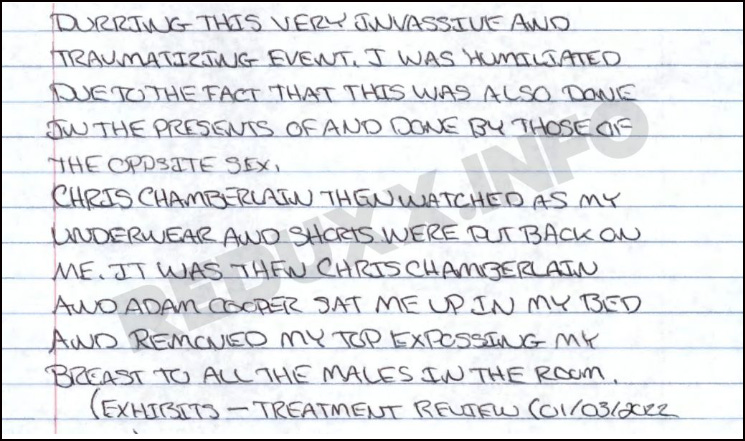 DURRING THIS VERY INVASSIVE AND
TRAUMATIZING EVENT. I WAS HUMILIATED
DUE TO THE FACT THAT THIS WAS ALSO DONE
IN THE PRESENTS OF AND DONE BY THOSE OF
THE OPOSITE SEX.
CHRIS CHAMBERLAIN THEN WATCHED AS MY
UNDERWEAR AND SHORTS WERE PUT BACK ON
ME. IT WAS THEN CHRIS CHAMBERLAIN
AND ADAM COOPER SAT ME UP IN MY BED
AND REMOVED MY TOP EXPOSSING MY
BREAST TO ALL THE MALES IN THE ROOM.
(EXHIBITS — TREATMENT REVIEW (01/03/2022
REDUXX.INFO